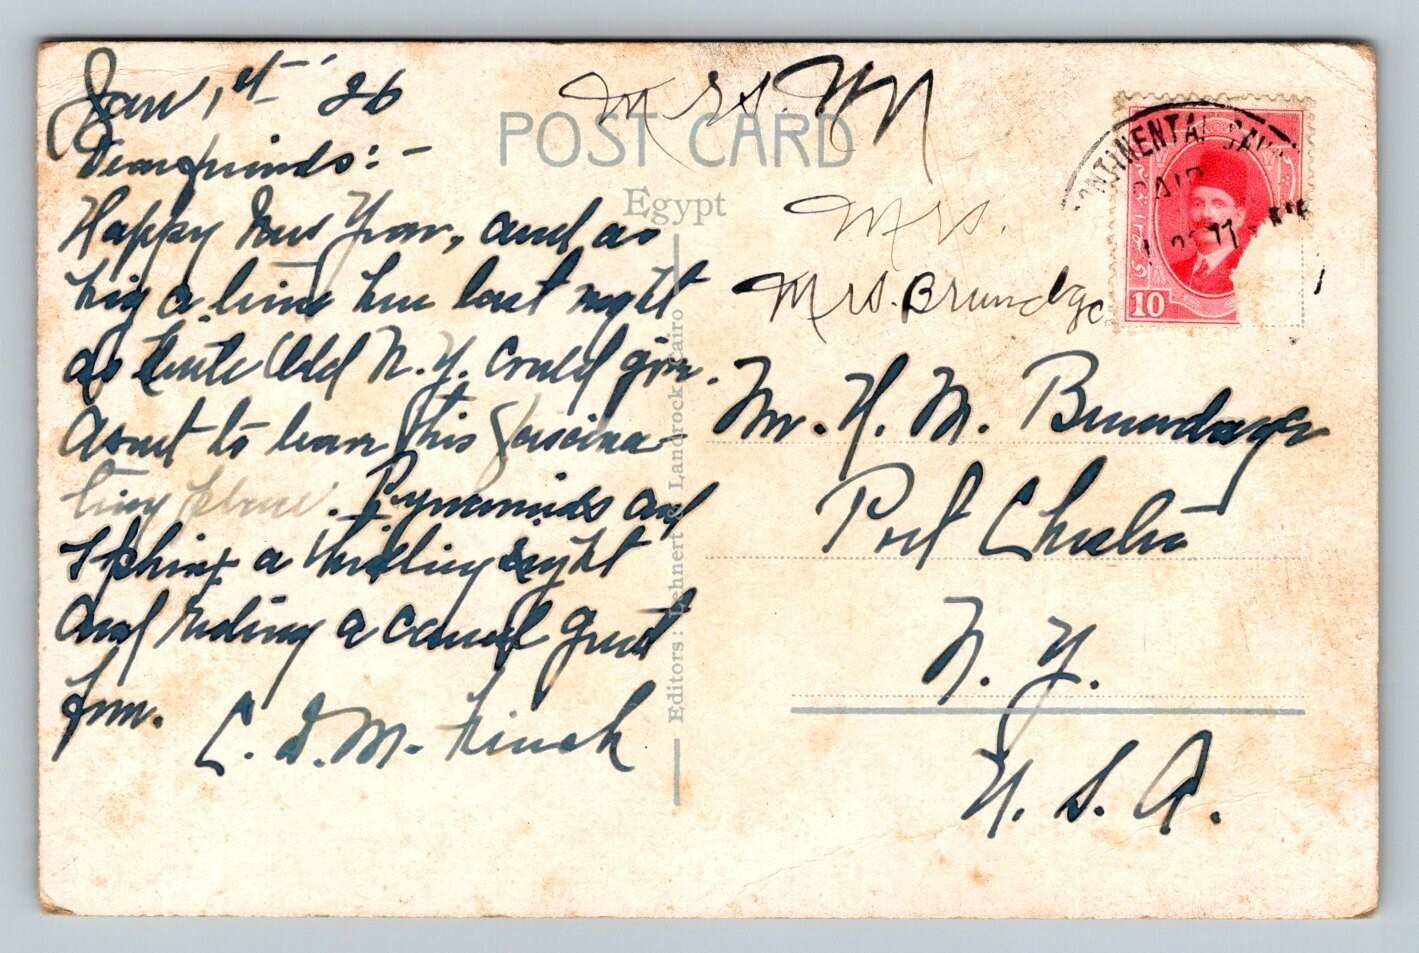 Jan 1st 26
Dear friends: -
Happy New Year, and as
big a time here last night
as little Old N. Y. could give.
Want to leave this fascina-
ting place. Pyramids and
Sphinx a thrilling sight
and riding a camel great
fun.
C. D. M. Finch
POST CARD
Egypt
Editors: Lehnert & Landrock, Cairo
Mrs. M
Mrs.
Mrs. Brundge
Mr. H. M. Brundage
Port Chester
N. Y.
U. S. A.
CONTINENTAL SAV
CAIR
10